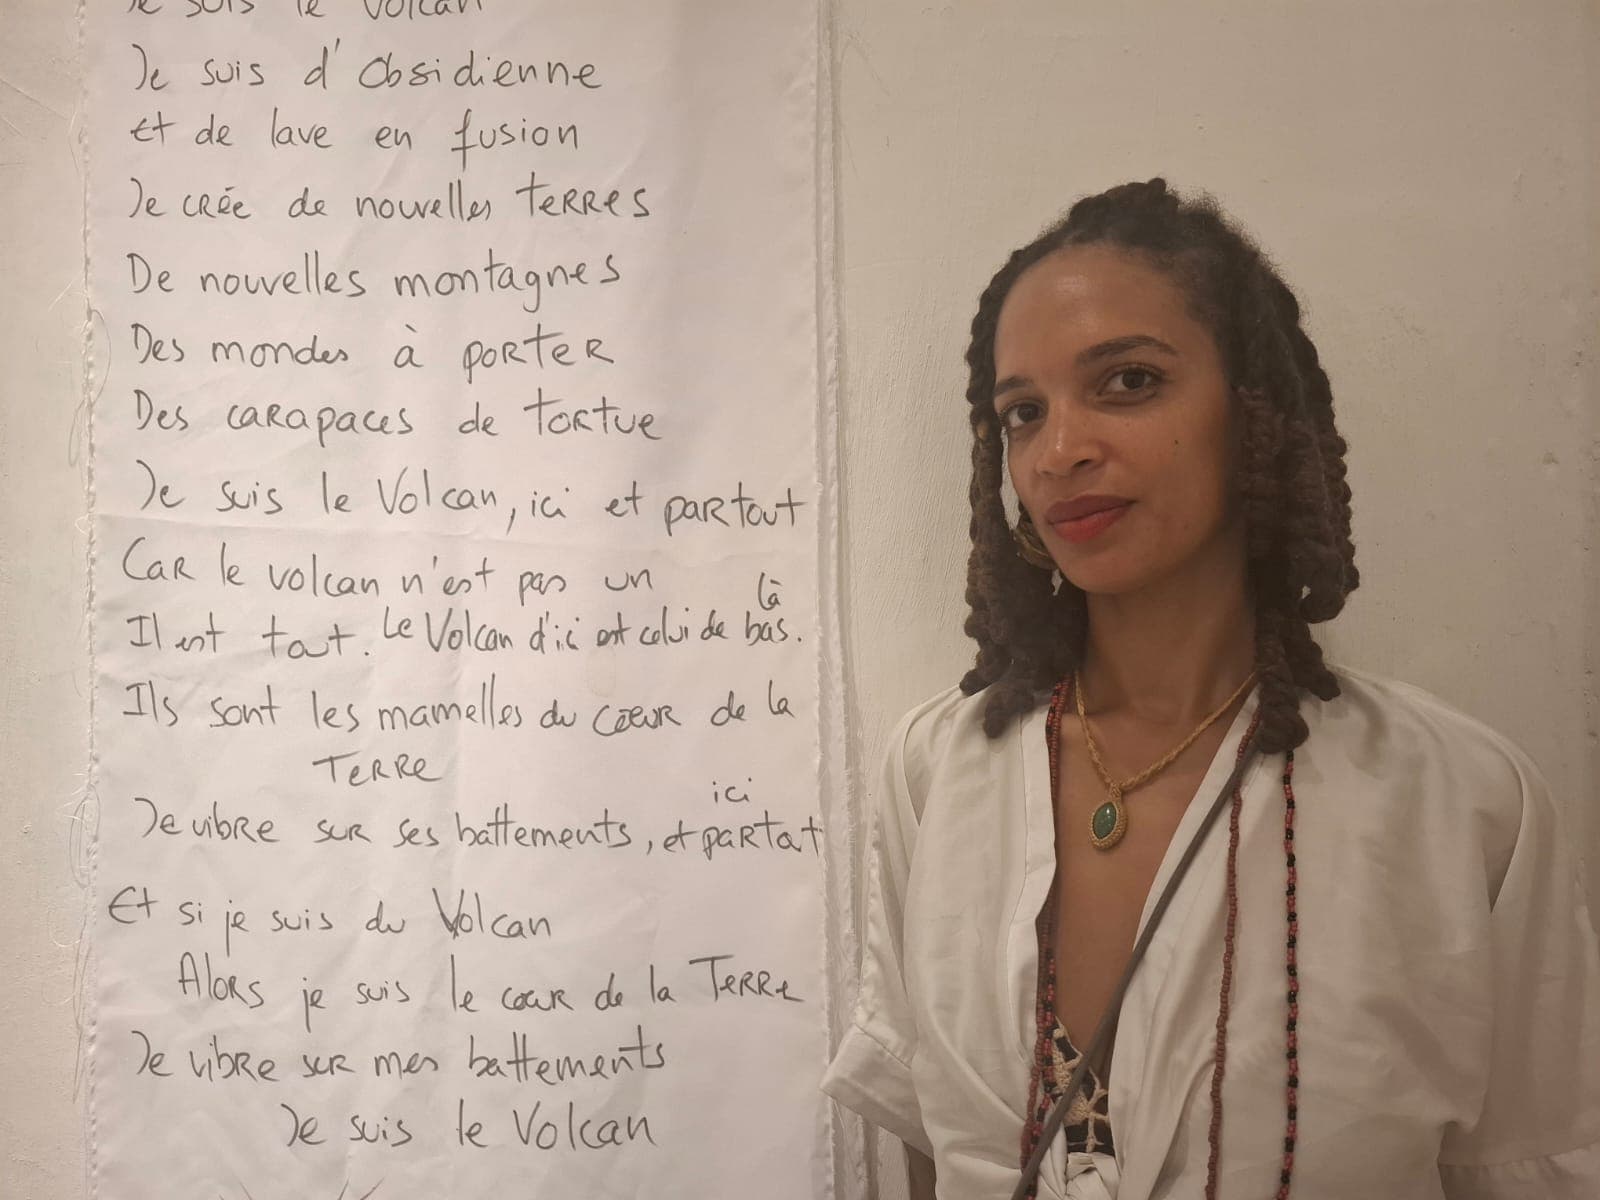 Je suis le Volcan
Je suis d'Obsidienne
Et de lave en fusion
Je crée de nouvelles terres
De nouvelles montagnes
Des mondes à porter
Des carapaces de tortue
Je suis le Volcan, ici et partout
Car le volcan n'est pas un
Il est tout. Le Volcan d'ici est celui de là bas.
Ils sont les mamelles du coeur de la
Terre
Je vibre sur ses battements, ici et partout
Et si je suis du Volcan
Alors je suis le coeur de la Terre
Je vibre sur mes battements
Je suis le Volcan